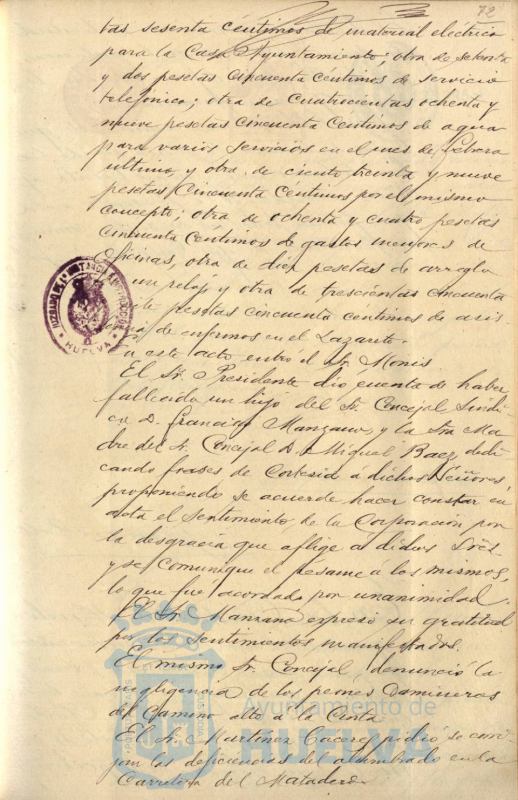 72
tas sesenta céntimos de material electrico
para la Casa Ayuntamiento; otra de setenta
y dos pesetas cincuenta centimos de servicio
telefonico; otra de cuatrocientas ochenta y
nueve pesetas cincuenta centimos de agua
para varios servicios en el mes de Febrero
último, y otra de ciento treinta y nueve
pesetas cincuenta céntimos por el mismo
concepto; otra de ochenta y cuatro pesetas
cincuenta céntimos de gastos menores de
oficinas, otra de diez pesetas de arreglo
un reloj y otra de trescientas cincuenta
pesetas cincuenta centimos de asis
de enfermos en el Lazareto.
n este acto entró el Sr. Monis
El Sr. Presidente dio cuenta de haber
fallecido un hijo del Sr. Concejal Sindi
co D. Francisco Manzano, y la Sra Ma
dre del Sr. Concejal D. Miguel Baez dedi
cando frases de cortesia á dichos Señores,
proponiendo se acuerde hacer constar en
acta el sentimiento de la Corporación por
la desgracia que aflige a dichos Sres
y se comunique el pésame á los mismos,
lo que fue acordado por unanimidad.
El Sr. Manzano expresó su gratitud
por los sentimientos manifestados.
El mismo Sr. Concejal, denunció la
negligencia de los peones Camineros
del Camino alto á la Cinta
El Sr. Martinez Caceres pidió se corri
jan las deficiencias del alumbrado en la
Carretera del Matadero.
HUELVA
Ayuntamiento de
HUELVA